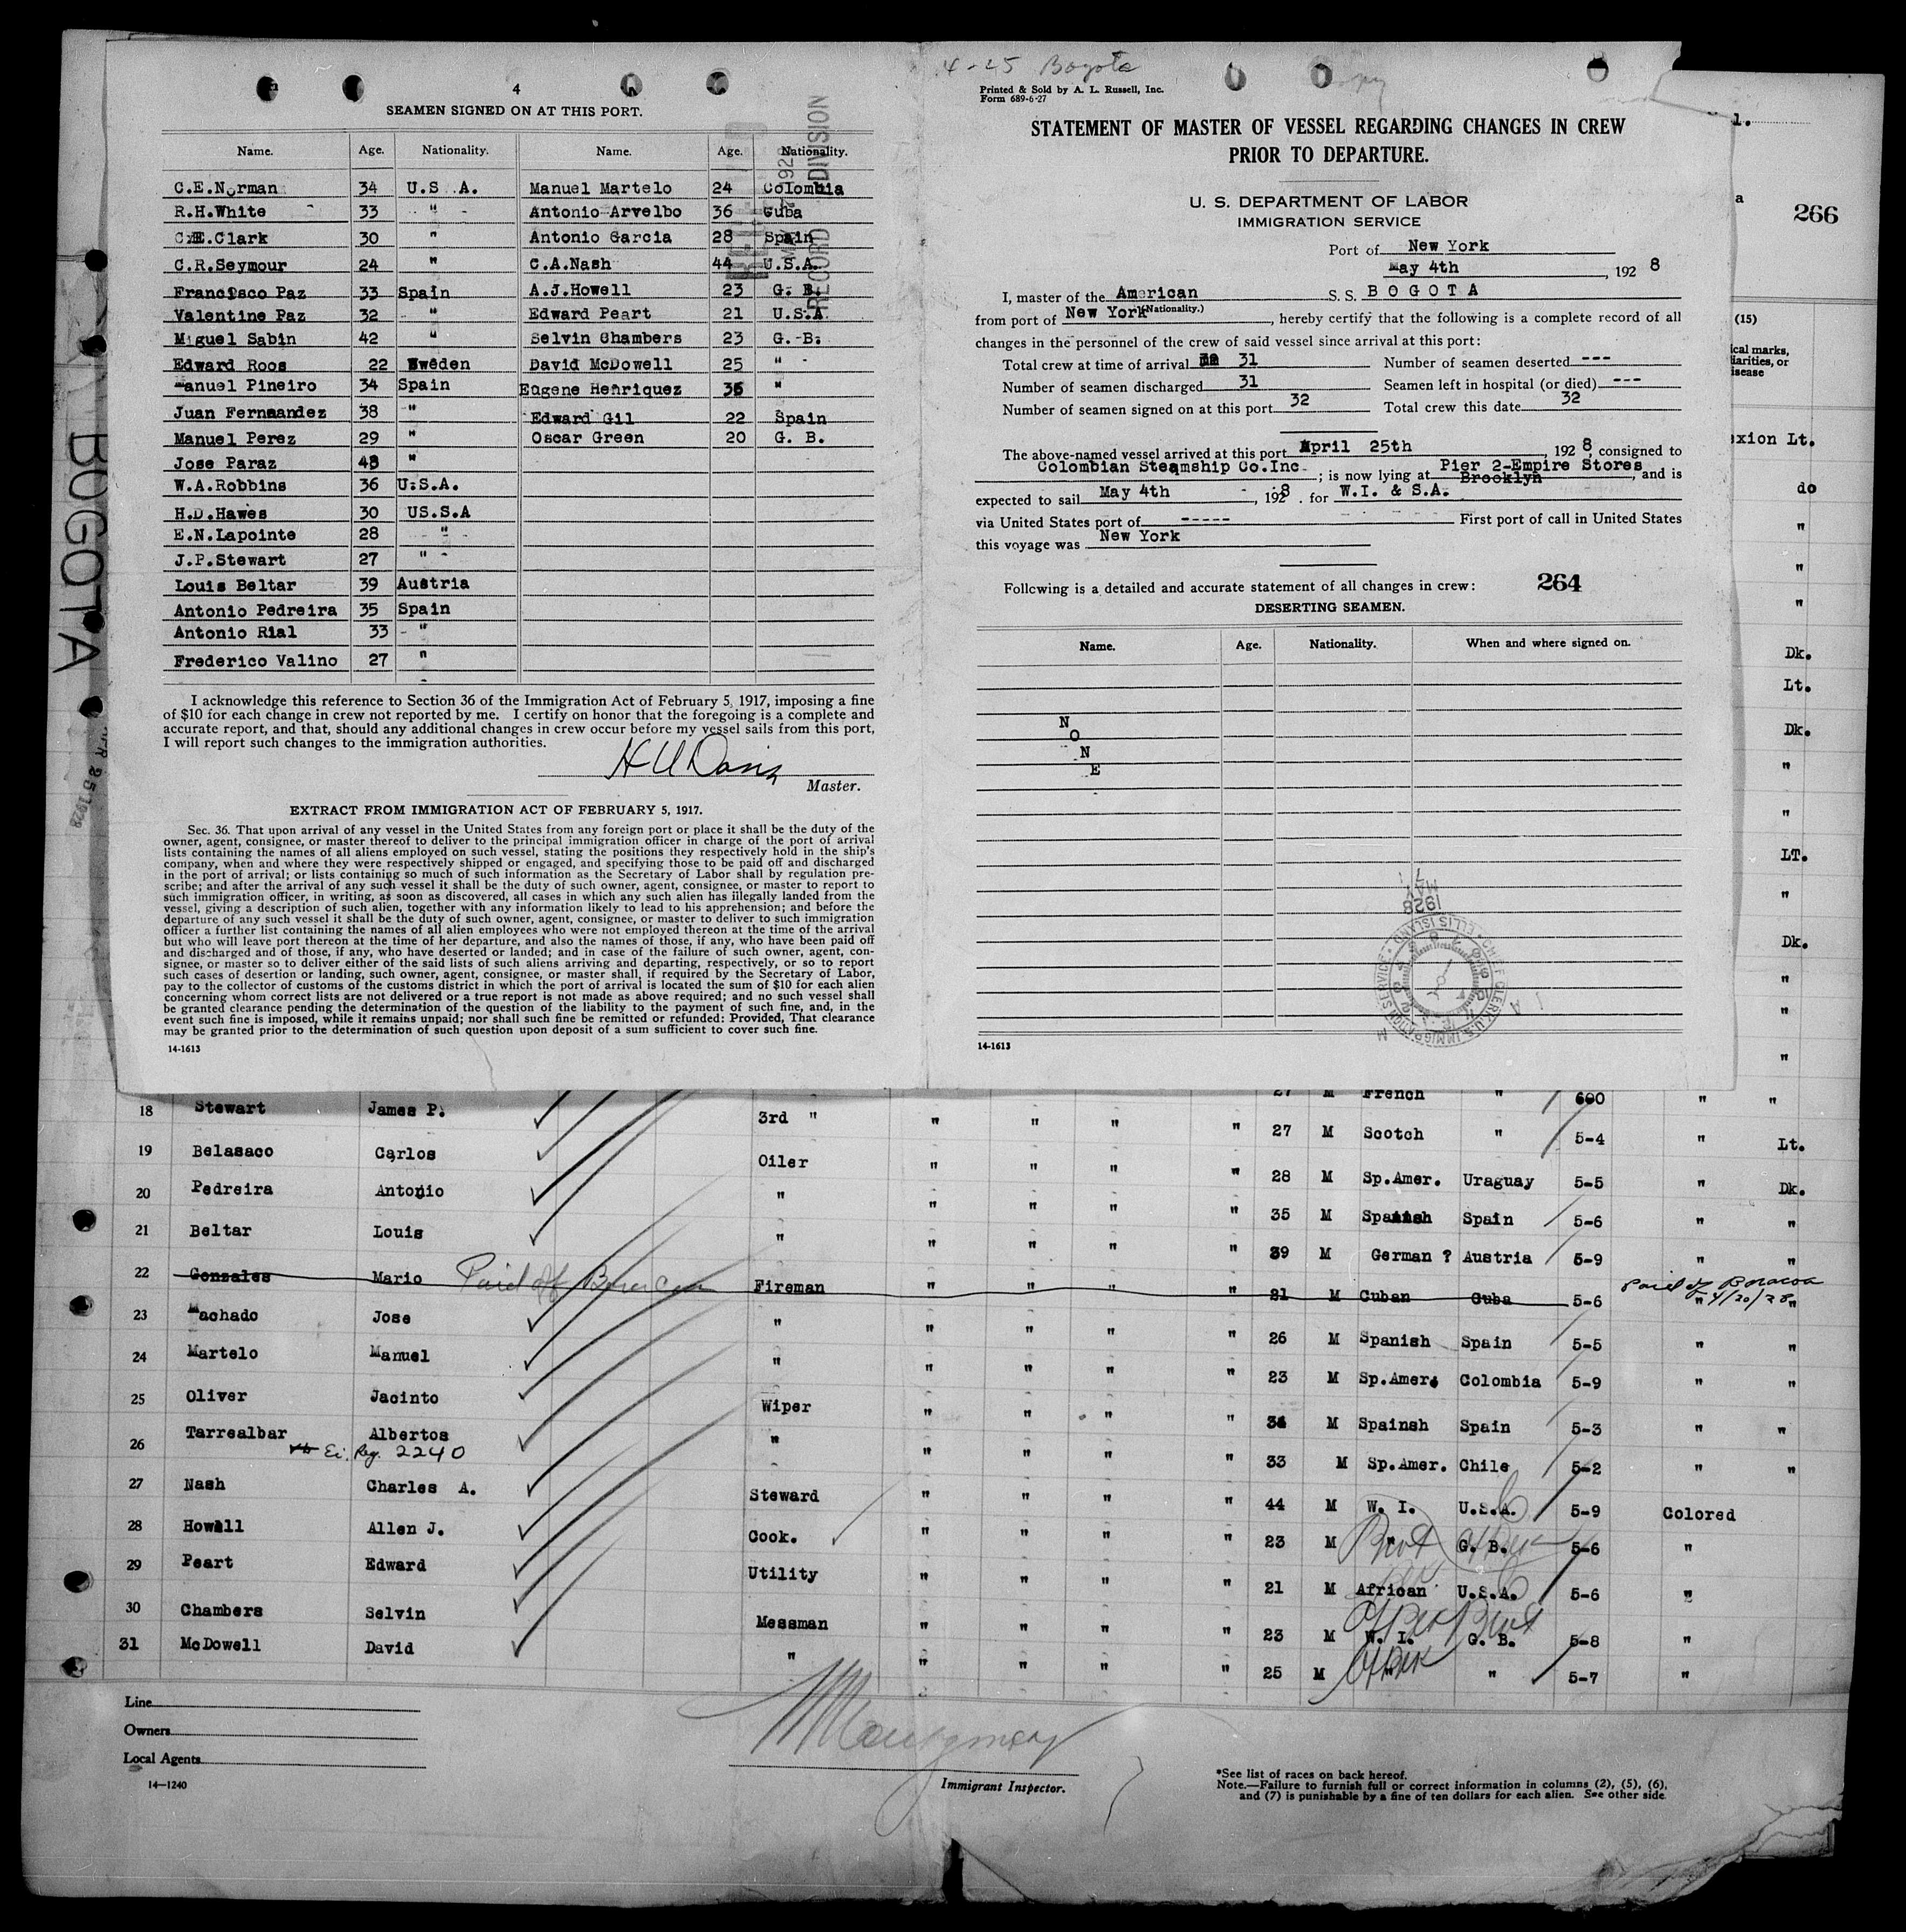 4
SEAMEN SIGNED ON AT THIS PORT.
Name. Age. Nationality. Name. Age. Nationality.
C.E.Norman 34 U.S A. Manuel Martelo 24 Colombia
R.H.White 33 " Antonio Arvelbo 36 Cuba
C.E.Clark 30 " Antonio Garcia 28 Spain
C.R.Seymour 24 " C.A.Nash 44 U.S.A.
Francisco Paz 33 Spain A.J.Howell 23 G. B.
Valentine Paz 32 " Edward Peart 21 U.S.A.
Miguel Sabin 42 " Selvin Chambers 23 G. B.
Edward Roos 22 Sweden David McDowell 25 "
Manuel Pineiro 34 Spain Eugene Henriquez 36 "
Juan Fernaandez 38 " Edward Gil 22 Spain
Manuel Perez 29 " Oscar Green 20 G. B.
Jose Paraz 43 "
W.A.Robbins 36 U.S.A.
H.D.Hawes 30 US.S.A
E.N.Lapointe 28 "
J.P.Stewart 27 "
Louis Beltar 39 Austria
Antonio Pedreira 35 Spain
Antonio Rial 33 "
Frederico Valino 27 "
RECORD DIVISION
I acknowledge this reference to Section 36 of the Immigration Act of February 5, 1917, imposing a fine
of $10 for each change in crew not reported by me. I certify on honor that the foregoing is a complete and
accurate report, and that, should any additional changes in crew occur before my vessel sails from this port,
I will report such changes to the immigration authorities.
Master.
EXTRACT FROM IMMIGRATION ACT OF FEBRUARY 5, 1917.
Sec. 36. That upon arrival of any vessel in the United States from any foreign port or place it shall be the duty of the
owner, agent, consignee, or master thereof to deliver to the principal immigration officer in charge of the port of arrival
lists containing the names of all aliens employed on such vessel, stating the positions they respectively hold in the ship's
company, when and where they were respectively shipped or engaged, and specifying those to be paid off and discharged
in the port of arrival; or lists containing so much of such information as the Secretary of Labor shall by regulation pre-
scribe; and after the arrival of any such vessel it shall be the duty of such owner, agent, consignee, or master to report to
such immigration officer, in writing, as soon as discovered, all cases in which any such alien has illegally landed from the
vessel, giving a description of such alien, together with any information likely to lead to his apprehension; and before the
departure of any such vessel it shall be the duty of such owner, agent, consignee, or master to deliver to such immigration
officer a further list containing the names of all alien employees who were not employed thereon at the time of the arrival
but who will leave port thereon at the time of her departure, and also the names of those, if any, who have been paid off
and discharged and of those, if any, who have deserted or landed; and in case of the failure of such owner, agent, con-
signee, or master so to deliver either of the said lists of such aliens arriving and departing, respectively, or so to report
such cases of desertion or landing, such owner, agent, consignee, or master shall, if required by the Secretary of Labor,
pay to the collector of customs of the customs district in which the port of arrival is located the sum of $10 for each alien
concerning whom correct lists are not delivered or a true report is not made as above required; and no such vessel shall
be granted clearance pending the determination of the question of the liability to the payment of such fine, and, in the
event such fine is imposed, while it remains unpaid; nor shall such fine be remitted or refunded: Provided, That clearance
may be granted prior to the determination of such question upon deposit of a sum sufficient to cover such fine.
14-1613
BOGOTA
APR 25 1928
4-25 Bogota
Printed & Sold by A. L. Russell, Inc.
Form 689-6-27
STATEMENT OF MASTER OF VESSEL REGARDING CHANGES IN CREW
PRIOR TO DEPARTURE.
U. S. DEPARTMENT OF LABOR
IMMIGRATION SERVICE
Port of New York
May 4th, 1928
I, master of the American S. S. BOGOTA
(Nationality.)
from port of New York, hereby certify that the following is a complete record of all
changes in the personnel of the crew of said vessel since arrival at this port:
Total crew at time of arrival 31 Number of seamen deserted ---
Number of seamen discharged 31 Seamen left in hospital (or died) ---
Number of seamen signed on at this port 32 Total crew this date 32
The above-named vessel arrived at this port April 25th, 1928, consigned to
Colombian Steamship Co.Inc ; is now lying at Pier 2-Empire Stores Brooklyn, and is
expected to sail May 4th, 1928. for W.I. & S.A.
via United States port of ----- First port of call in United States
this voyage was New York
Following is a detailed and accurate statement of all changes in crew: 264
DESERTING SEAMEN.
Name. Age. Nationality. When and where signed on.
NONE
MAY 7 1928
CHIEF CLERK U.S. IMMIGRATION SERVICE ELLIS ISLAND
14-1613
266
(15)
exion Lt.
do
"
"
"
Dk.
Lt.
Dk.
"
"
LT.
"
Dk.
"
"
"
27 M French " 600 " "
18 Stewart James P. 3rd " " " " " 27 M Scotch " 5-4 " Lt.
19 Belasaco Carlos Oiler " " " " 28 M Sp.Amer. Uraguay 5-5 " Dk.
20 Pedreira Antonio " " " " " 35 M Spanish Spain 5-6 " "
21 Beltar Louis " " " " " 39 M German ? Austria 5-9 " "
22 Gonzales Mario Paid off Baracoa Fireman " " " " 21 M Cuban Cuba 5-6 Paid off Baracoa 4/20/28 " "
23 Machado Jose " " " " " 26 M Spanish Spain 5-5 " "
24 Martelo Manuel " " " " " 23 M Sp.Amer. Colombia 5-9 " "
25 Oliver Jacinto Wiper " " " " 34 M Spainsh Spain 5-3 " "
26 Tarrealbar Albertos " " " " " 33 M Sp.Amer. Chile 5-2 " "
Ei. Reg. 2240
27 Nash Charles A. Steward " " " " 44 M W. I. U.S.A. 5-9 Colored
28 Howell Allen J. Cook. " " " " 23 M " G. B. 5-6 "
29 Peart Edward Utility " " " " 21 M African U.S.A. 5-6 "
30 Chambers Selvin Messman " " " " 23 M W. I. G. B. 5-8 "
31 McDowell David " " " " " 25 M " " 5-7 "
Line
Owners
Local Agents
14—1240
Montgomery
Immigrant Inspector.
*See list of races on back hereof.
Note.—Failure to furnish full or correct information in columns (2), (5), (6),
and (7) is punishable by a fine of ten dollars for each alien. See other side.